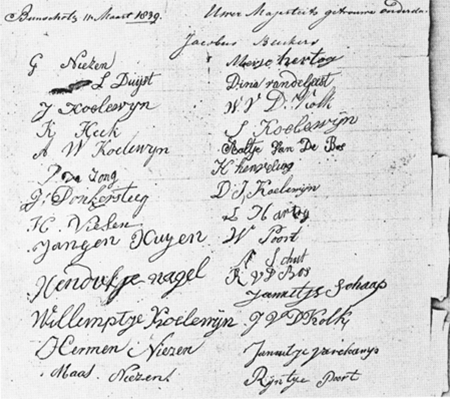 Bunschoten 11 Maart 1839.
Uwer Majesteits getrouwe onderda
Jacobus Beukers
G Niezen
L Duijst
J Koelewijn
K Heek
A W Koelewijn
P de Jong
G. Donkersteeg
H. Vielen
Jangen Huijgen
Hendrikje nagel
Willemptje Koelewijn
Harmen Niezen
Maas Niezen
hertog
Dina vandelfast
W V D Kolk
S Koelewijn
Aaltje Van De Bos
K henveling
D J Koelewijn
L Hartog
W Poort
A Schut
R V D Bos
Jannitje Schaap
J V D Kolk
Jannitje
Rijntje Poort